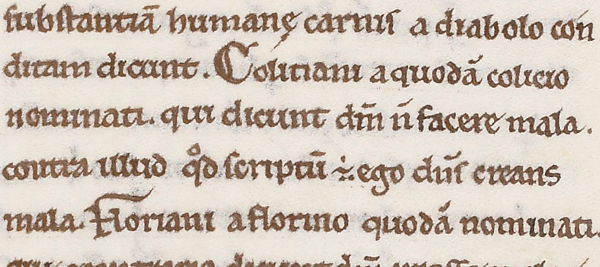 substantiā humanę carnis a diabolo con
ditam dicunt. Colitiani a quodā colicio
nominati. qui dicunt dm̄ n̄ facere mala.
contra illud qđ scriptū ÷ ego dn̄s creans
mala. Floriani a florino quodā nominati.